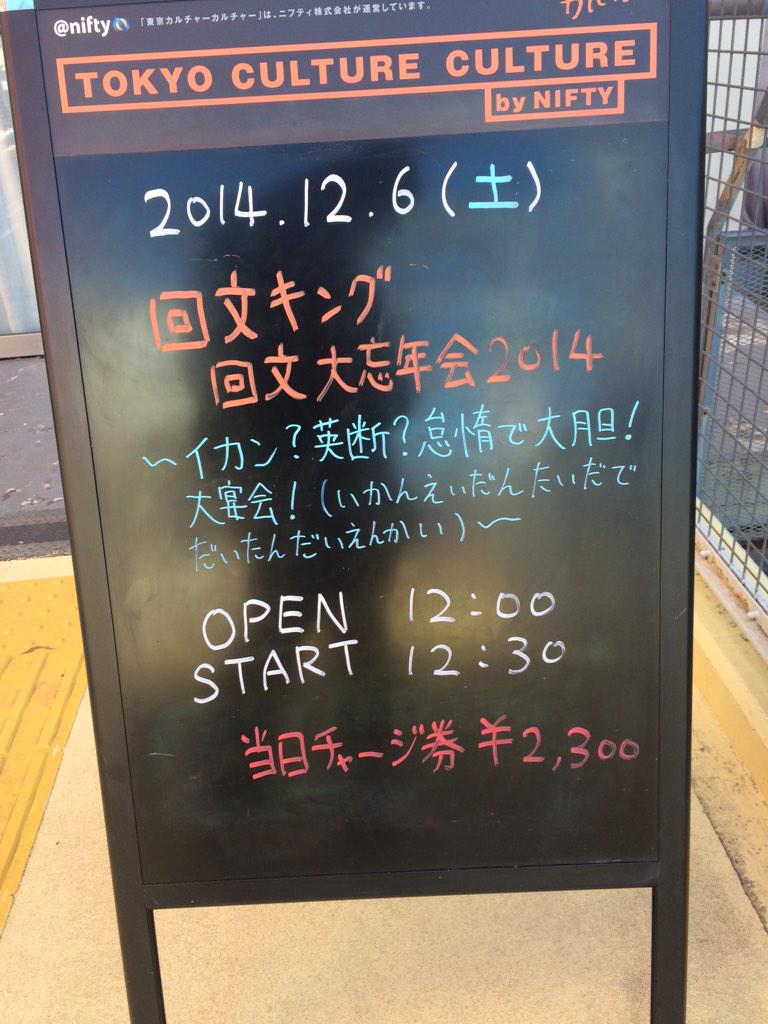 @nifty 「東京カルチャーカルチャー」は、ニフティ株式会社が運営しています。
TOKYO CULTURE CULTURE
by NIFTY
2014.12.6(土)
回文キング
回文大忘年会2014
〜イカン?英断?怠惰で大胆!
大宴会!(いかんえいだんたいだで
だいたんだいえんかい)〜
OPEN 12:00
START 12:30
当日チャージ券 ¥2,300